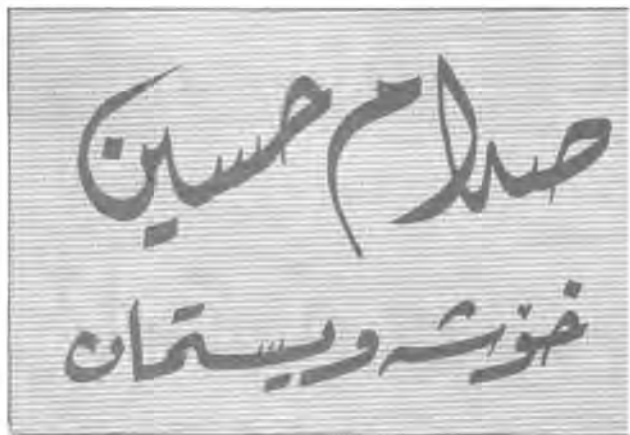 صدام حسين
خۆشەویستمان